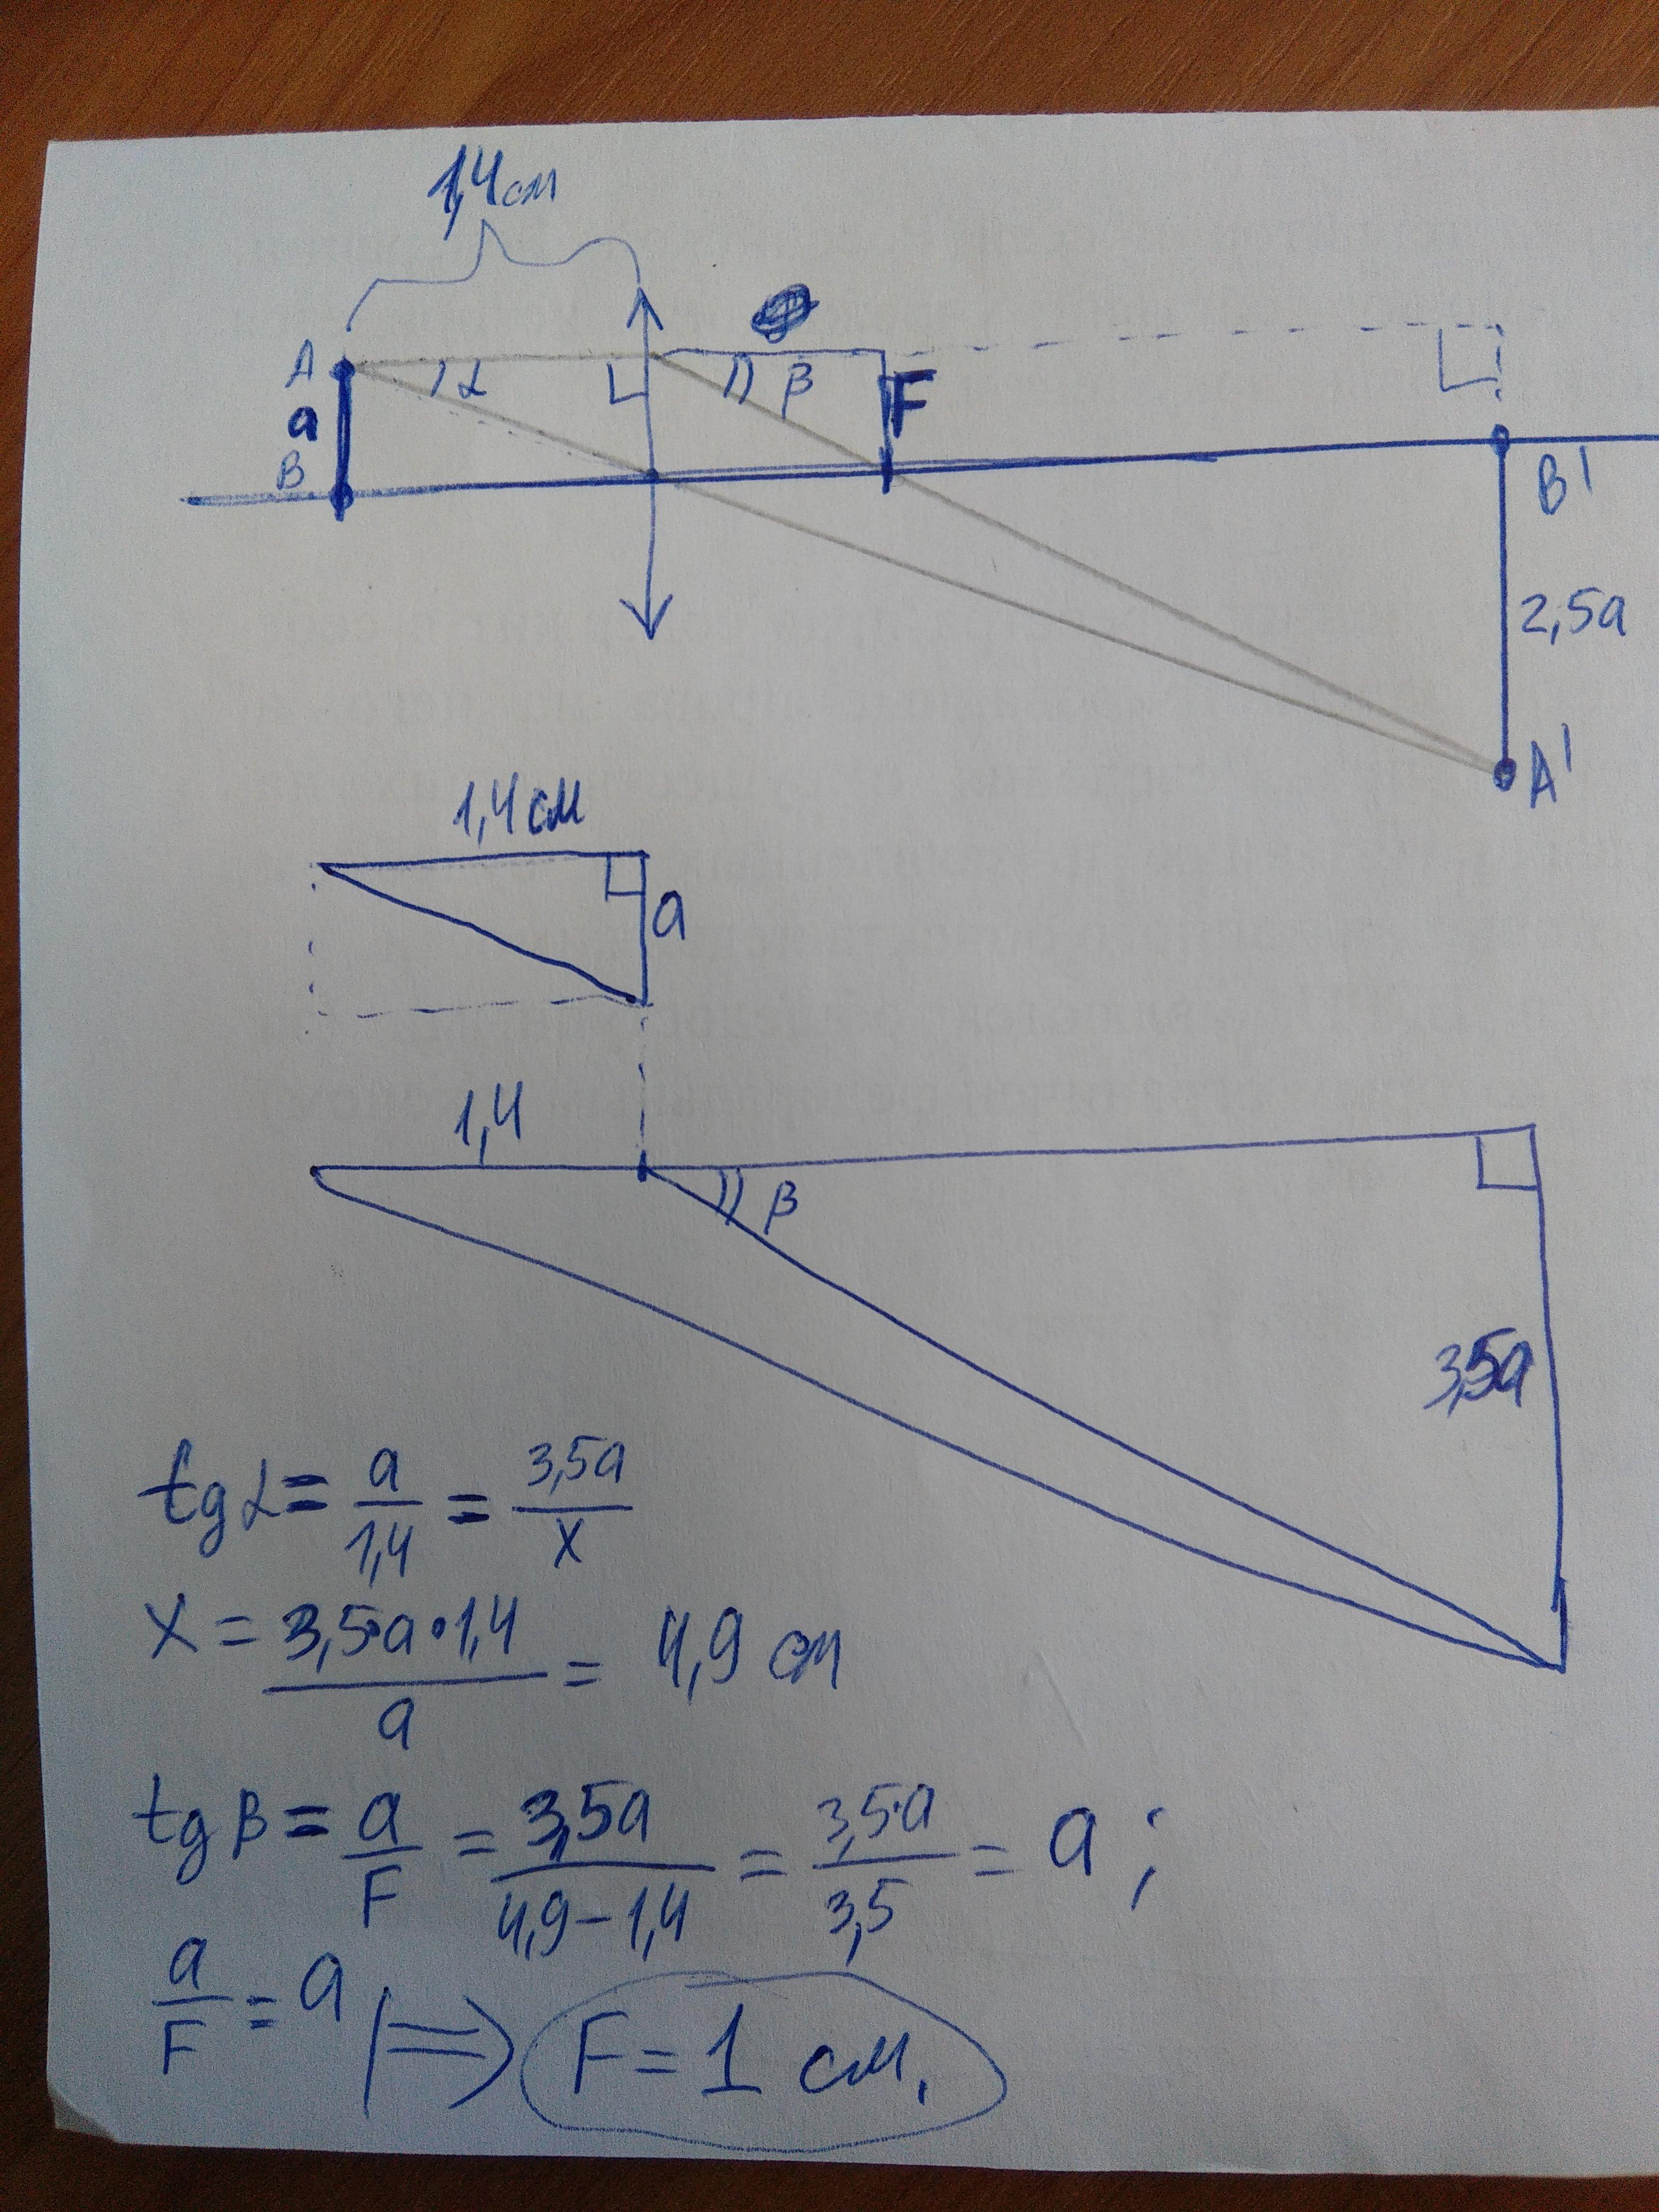 1,4 см
A α β F
a
B
B'
2,5a
A'
1,4 см
a
1,4
β
3,5a
tg α = a/1,4 = 3,5a/x
x = 3,5·a·1,4/a = 4,9 см
tg β = a/F = 3,5a/4,9-1,4 = 3,5·a/3,5 = a;
a/F = a |=> F = 1 см.